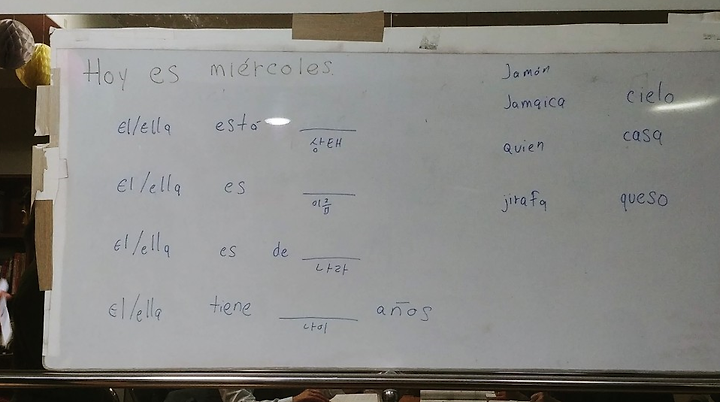 Hoy es miércoles.
El/ella está ____
상태
El/ella es ____
이름
El/ella es de ____
나라
El/ella tiene ____ años
나이
Jamón
Jamaica cielo
quien casa
jirafa queso